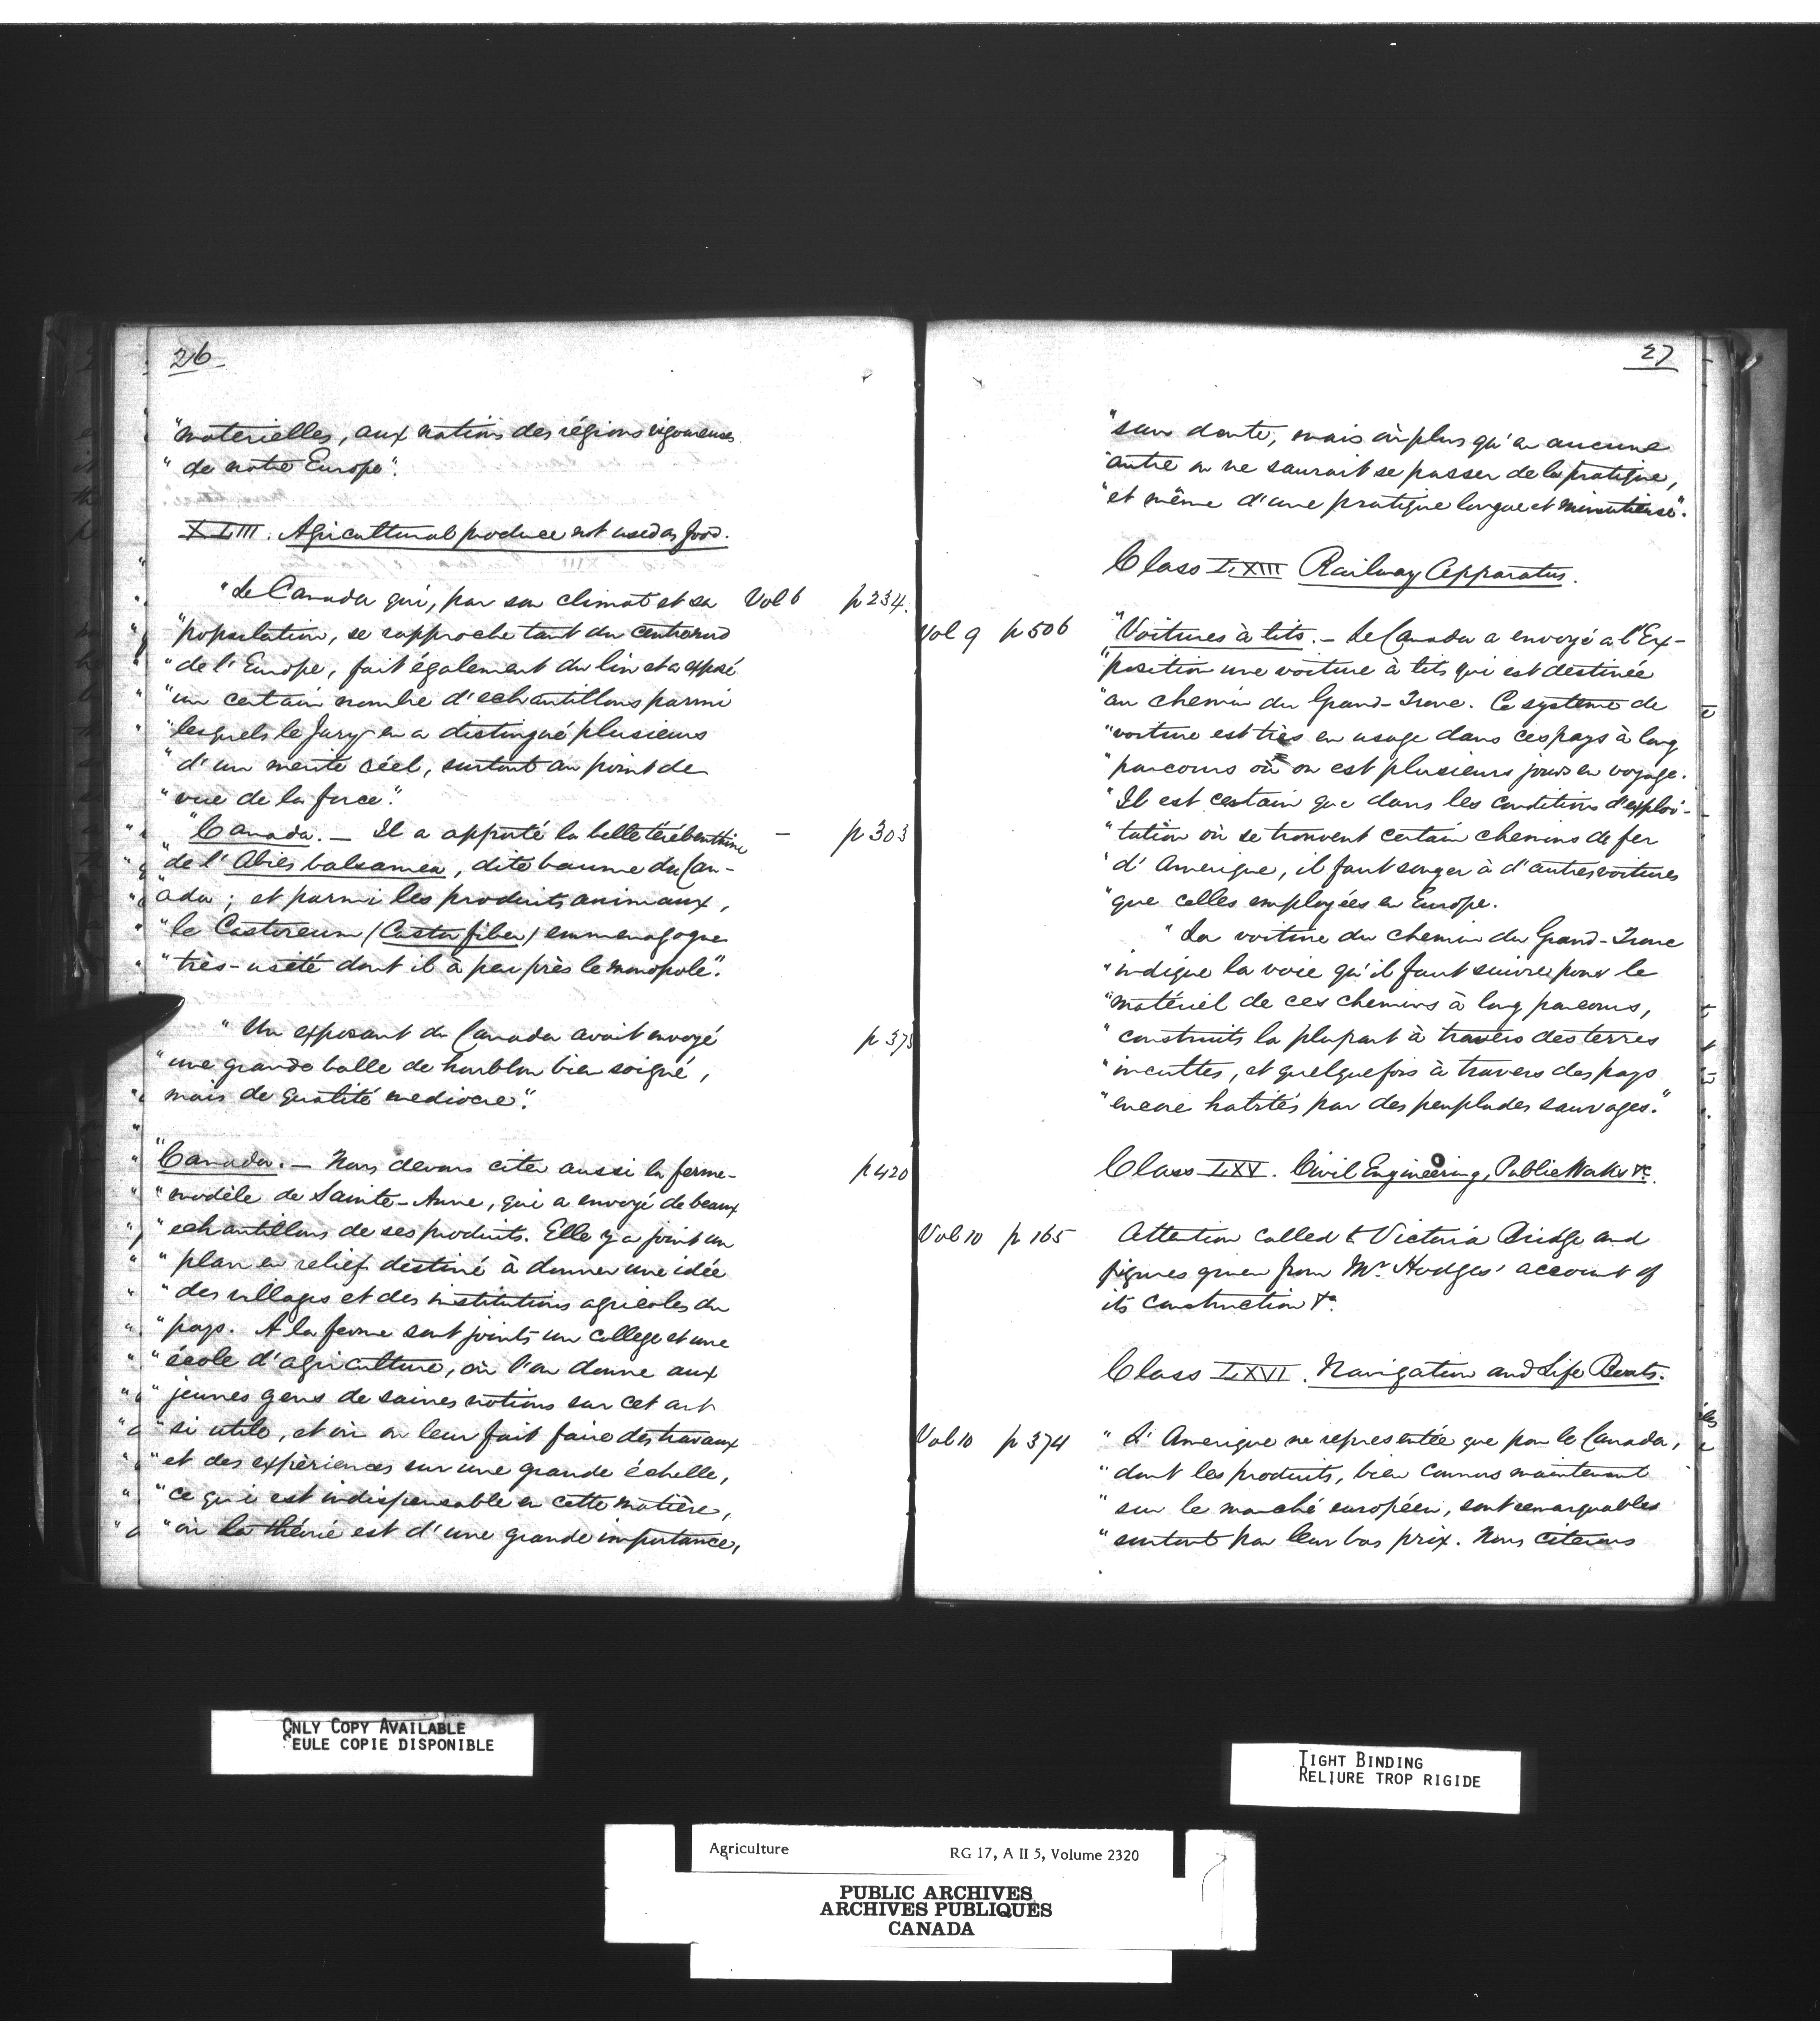 26
"materielles, aux nations des régions vigoureuses
"de notre Europe".
XLIII. Agricultural produce not used as food.
"Le Canada qui, par son climat et sa Vol 6 p 234.
"population, se rapproche tant du centre nord
"de l'Europe, fait également du lin et a exposé
"un certain nombre d'echantillons parmi
"lesquels le Jury en a distingué plusieurs
"d'un merite réel, surtout au point de
"vue de la force".
"Canada. — Il a apporté la belle térébenthine — p 303
"de l'Abies balsamea, dite baume du Can-
"ada; et parmi les produits animaux,
"le Castoreum (Castor fiber) emmenagogue
"très-usité dont il a à peu près le monopole".
"Un exposant du Canada avait envoyé p 373
"une grande balle de houblon bien soigné,
mais de qualité mediocre".
"Canada. — Nous devons citer aussi la ferme- p 420
"modèle de Sainte-Anne, qui a envoyé de beaux
"echantillons de ses produits. Elle y a joint un
"plan en relief destiné à donner une idée
"des villages et des institutions agricoles du
"pays. A la ferme sont joints un college et une
"école d'agriculture, où l'on donne aux
"jeunes gens de saines notions sur cet art
"si utile, et où on leur fait faire des travaux
"et des expèriences sur une grande échelle,
"ce qui est indispensable en cette matière,
"où la théorie est d'une grande importance,
27
"sans doute, mais où plus qu'en aucune
"autre on ne saurait se passer de la pratique,
"et même d'une pratique longue et minutieuse".
Class LXIII Railway Apparatus.
Vol 9 p 506 "Voitures à lits. — Le Canada a envoyé a l'Ex-
"position une voiture à lits qui est destinée
"au chemin du Grand-Tronc. Ce systeme de
"voiture est très en usage dans ces pays à long
"parcours où on est plusieurs jours en voyage.
"Il est certain que dans les conditions d'exploi-
"tation où se trouvent certain chemins de fer
"d'Amerique, il faut songer à d'autres voitures
"que celles employées en Europe.
"La voiture du chemin du Grand-Tronc
"indique la voie qu'il faut suivre pour le
"matériel de ces chemins à long parcours,
"construits la plupart à travers des terres
"incultes, et quelquefois à travers des pays
"encore habités par des peuplades sauvages."
Class LXV. Civil Engineering, Public Works &c.
Vol 10 p 165 Attention called to Victoria Bridge and
figures given from Mr Hodges' account of
its construction &c.
Class LXVI. Navigation and Life Boats.
Vol 10 p 374 "L'Amerique ne representée que par le Canada,
"dont les produits, bien connus maintenant
"sur le marché européen, sont remarquables
"surtout par leur bas prix. Nous citerons
ONLY COPY AVAILABLE
SEULE COPIE DISPONIBLE
TIGHT BINDING
RELIURE TROP RIGIDE
Agriculture RG 17, A II 5, Volume 2320
PUBLIC ARCHIVES
ARCHIVES PUBLIQUES
CANADA